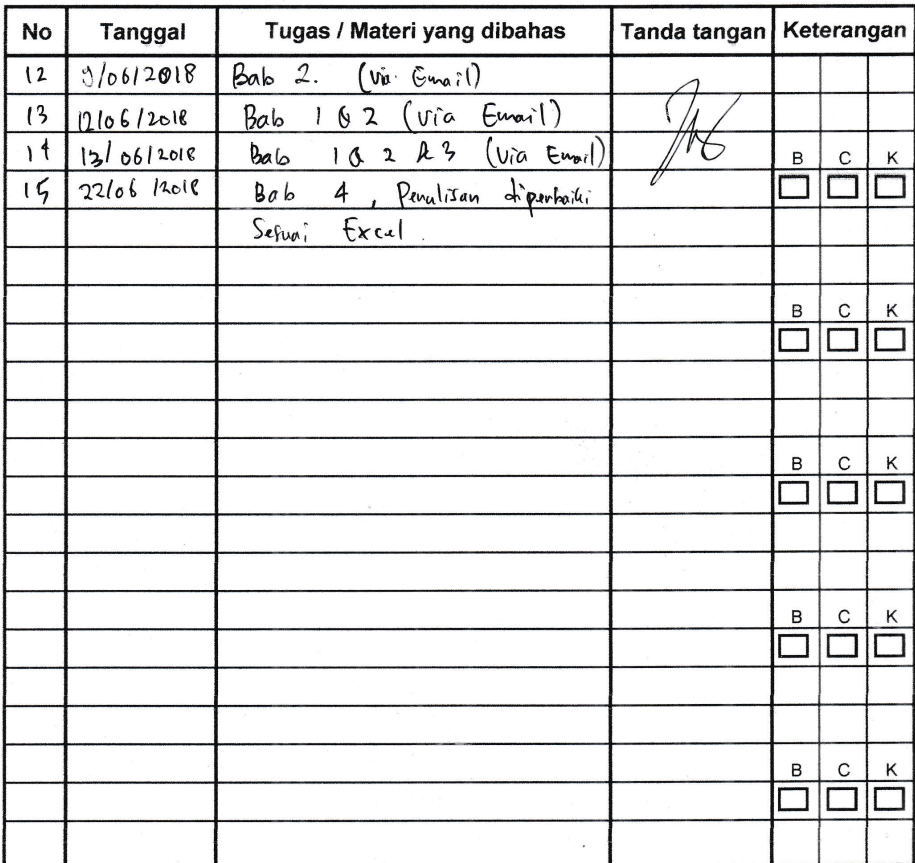 No Tanggal Tugas / Materi yang dibahas Tanda tangan Keterangan
12 9/06/2018 Bab 2. (via Email)
13 12/06/2018 Bab 1 & 2 (via Email)
14 13/06/2018 Bab 1 & 2 & 3 (via Email)
B C K
15 22/06/2018 Bab 4, Penulisan diperbaiki
Sesuai Excel.
B C K
B C K
B C K
B C K